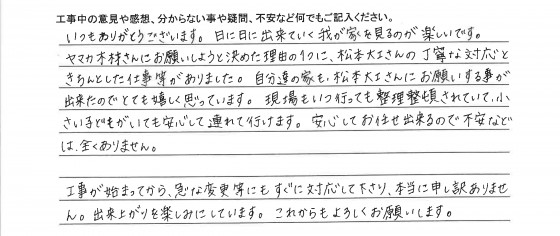 工事中の意見や感想、分からない事や疑問、不安など何でもご記入ください。
いつもありがとうございます。日に日に出来ていく我が家を見るのが楽しいです。
ヤマカ木材さんにお願いしようと決めた理由の1つに、松本大工さんの丁寧な対応と
きちんとした仕事等がありました。自分達の家も、松本大工さんにお願いする事が
出来たのでとても嬉しく思っています。現場もいつ行っても整理整頓されていて、小
さい子どもがいても安心して連れて行けます。安心してお任せ出来るので不安などは
は、全くありません。
工事が始まってから、急な変更等にもすぐに対応して下さり、本当に申し訳ありませ
ん。出来上がりを楽しみにしています。これからもよろしくお願いします。